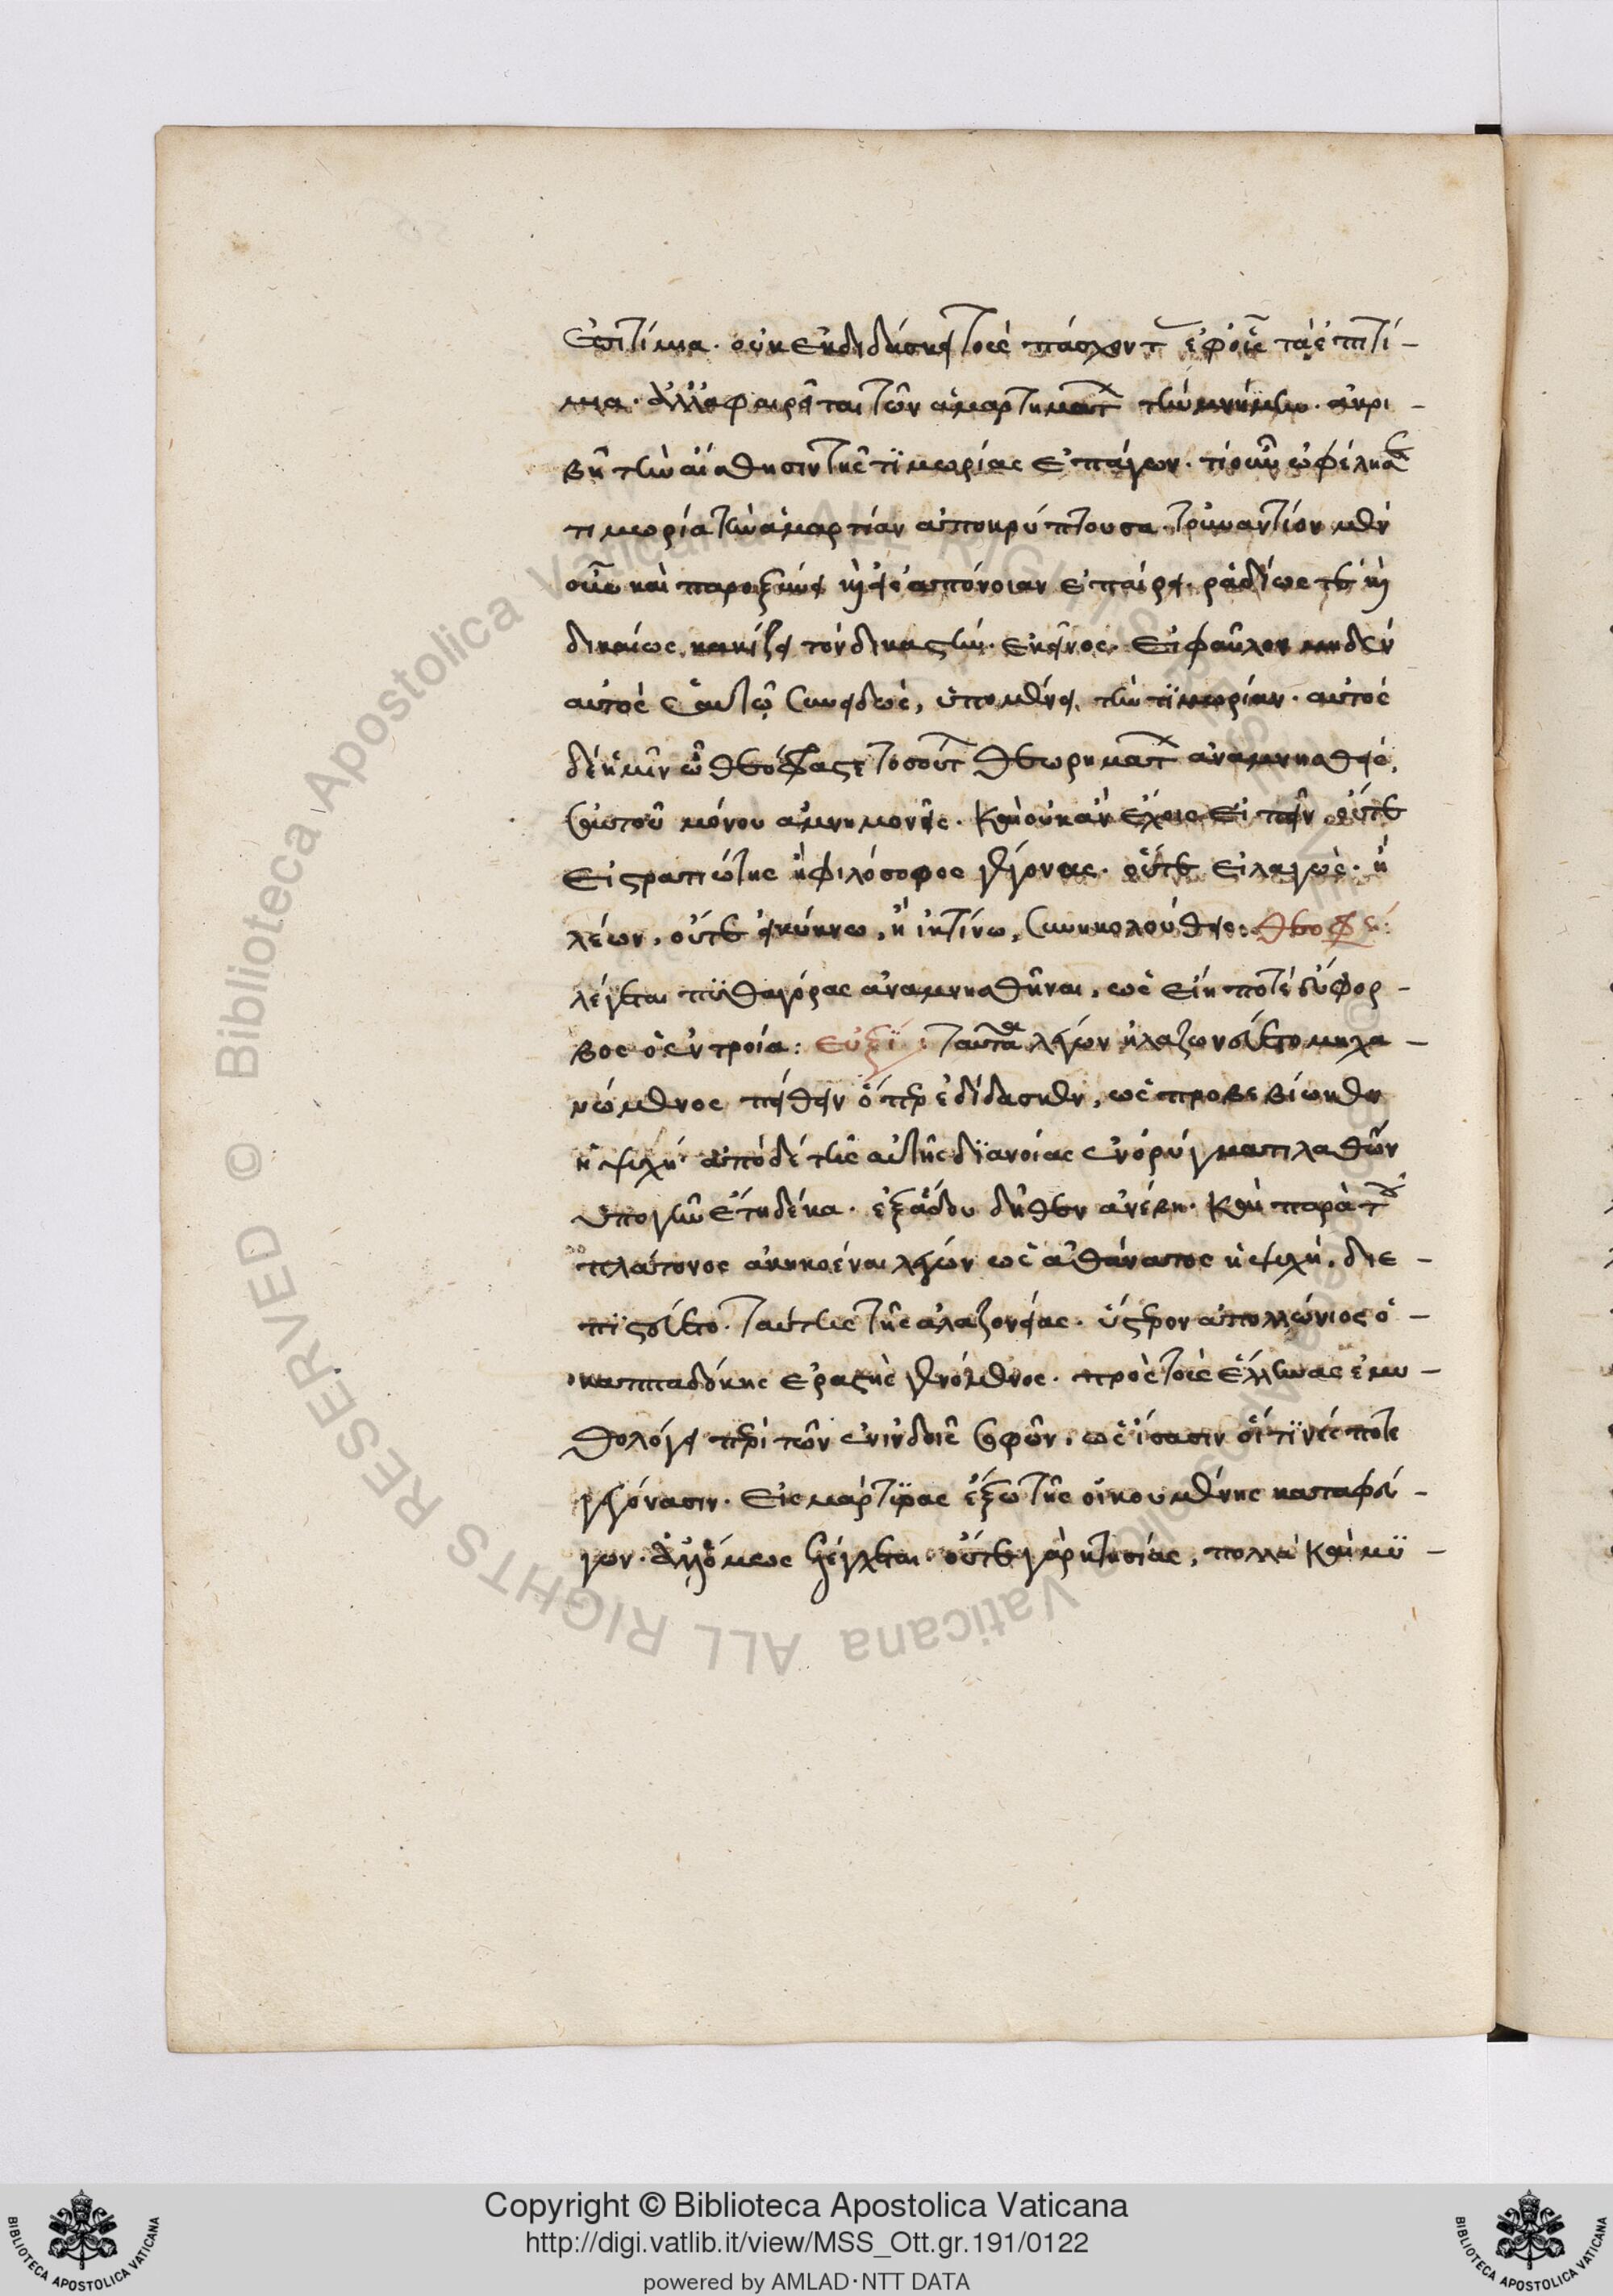 ἐπιτίμια. οὐκ ἐκδιδάσκει τοὺς πάσχοντ ἐφ' οἷς τὰ ἐπιτί-
μια. ἀλλ' ἀφαιρεῖται τῶν ἁμαρτηματ τὴν μνήμην. ἀκρι-
βῆ τὴν αἴσθησιν τῆς τϊμωρίας ἐπάγων. τί οὖν ὠφέλησε
τιμωρία τὴν ἁμαρτίαν ἀποκρύπτουσα. τοὐναντίον μὲν
οὖν καὶ παροξύνει καὶ εἰς ἀπόνοιαν ἐπαίρει. ῥαδίως τε καὶ
δικαίως κακίζει τὸν δικαστὴν. ἐκεῖνος. εἰ φαῦλον μηδὲν
αὐτὸς ἑαυτῷ συνειδὼς, ὑπομένει τὴν τϊμωρίαν. αὐτὸς
δὲ ἡμῖν ὦ θεόφραστε τοσούτ θεωρηματ ἀναμνησθεὶς,
σαυτοῦ μόνου ἀμνημονεῖς. καὶ οὐκ ἂν ἔχοις εἰπεῖν οὔτε
εἰ στρατιώτης ἢ φιλόσοφος γέγονας. οὔτε εἰ λαγὼς. ἢ
λέων, οὔτε εἰ κύκνω, ἢ ἰκτίνω, συνηκολούθεις: θεοφ:
λέγεται πϋθαγόρας ἀναμνησθῆναι, ὡς εἴη ποτὲ εὔφορ-
βος ὁ ἐν τροία: εὐξί: ταῦτα λέγων ἠλαζονεύετο μηχα-
νώμενος πείθειν ὅπερ ἐδίδασκεν, ὡς προβεβίωκεν
ἡ ψυχή· ἀπὸ δὲ τῆς αὐτῆς δϊανοίας ἐν ὀρύγματι λαθὼν
ὑπὸ γῆν ἔτη δέκα. ἐξ ᾅδου δῆθεν ἀνέβη. καὶ παρὰ τοῦ
πλάτονος ἀκηκοέναι λέγων ὡς ἀθάνατος ἡ ψυχὴ, διε-
πϊστεύετο. ταύτης τῆς ἀλαζονείας. ὕστερον ἀπολλώνιος ὁ-
καππαδόκης ἐραστὴς γενόμενος. πρὸς τοὺς ἕλληνας ἐμυ-
θολόγει περὶ τῶν ἐν ἰνδοῖς σοφῶν. ὡς ἴσασιν οἵ τϊνές ποτε
γεγόνασιν. εἰς μάρτϋρας ἔξω τῆς οἰκουμένης καταφεύ-
γων. ἀλλ' ὅμως ἐλέγχεται. οὔτε γὰρ κτησίας, πολλὰ καὶ μϋ-